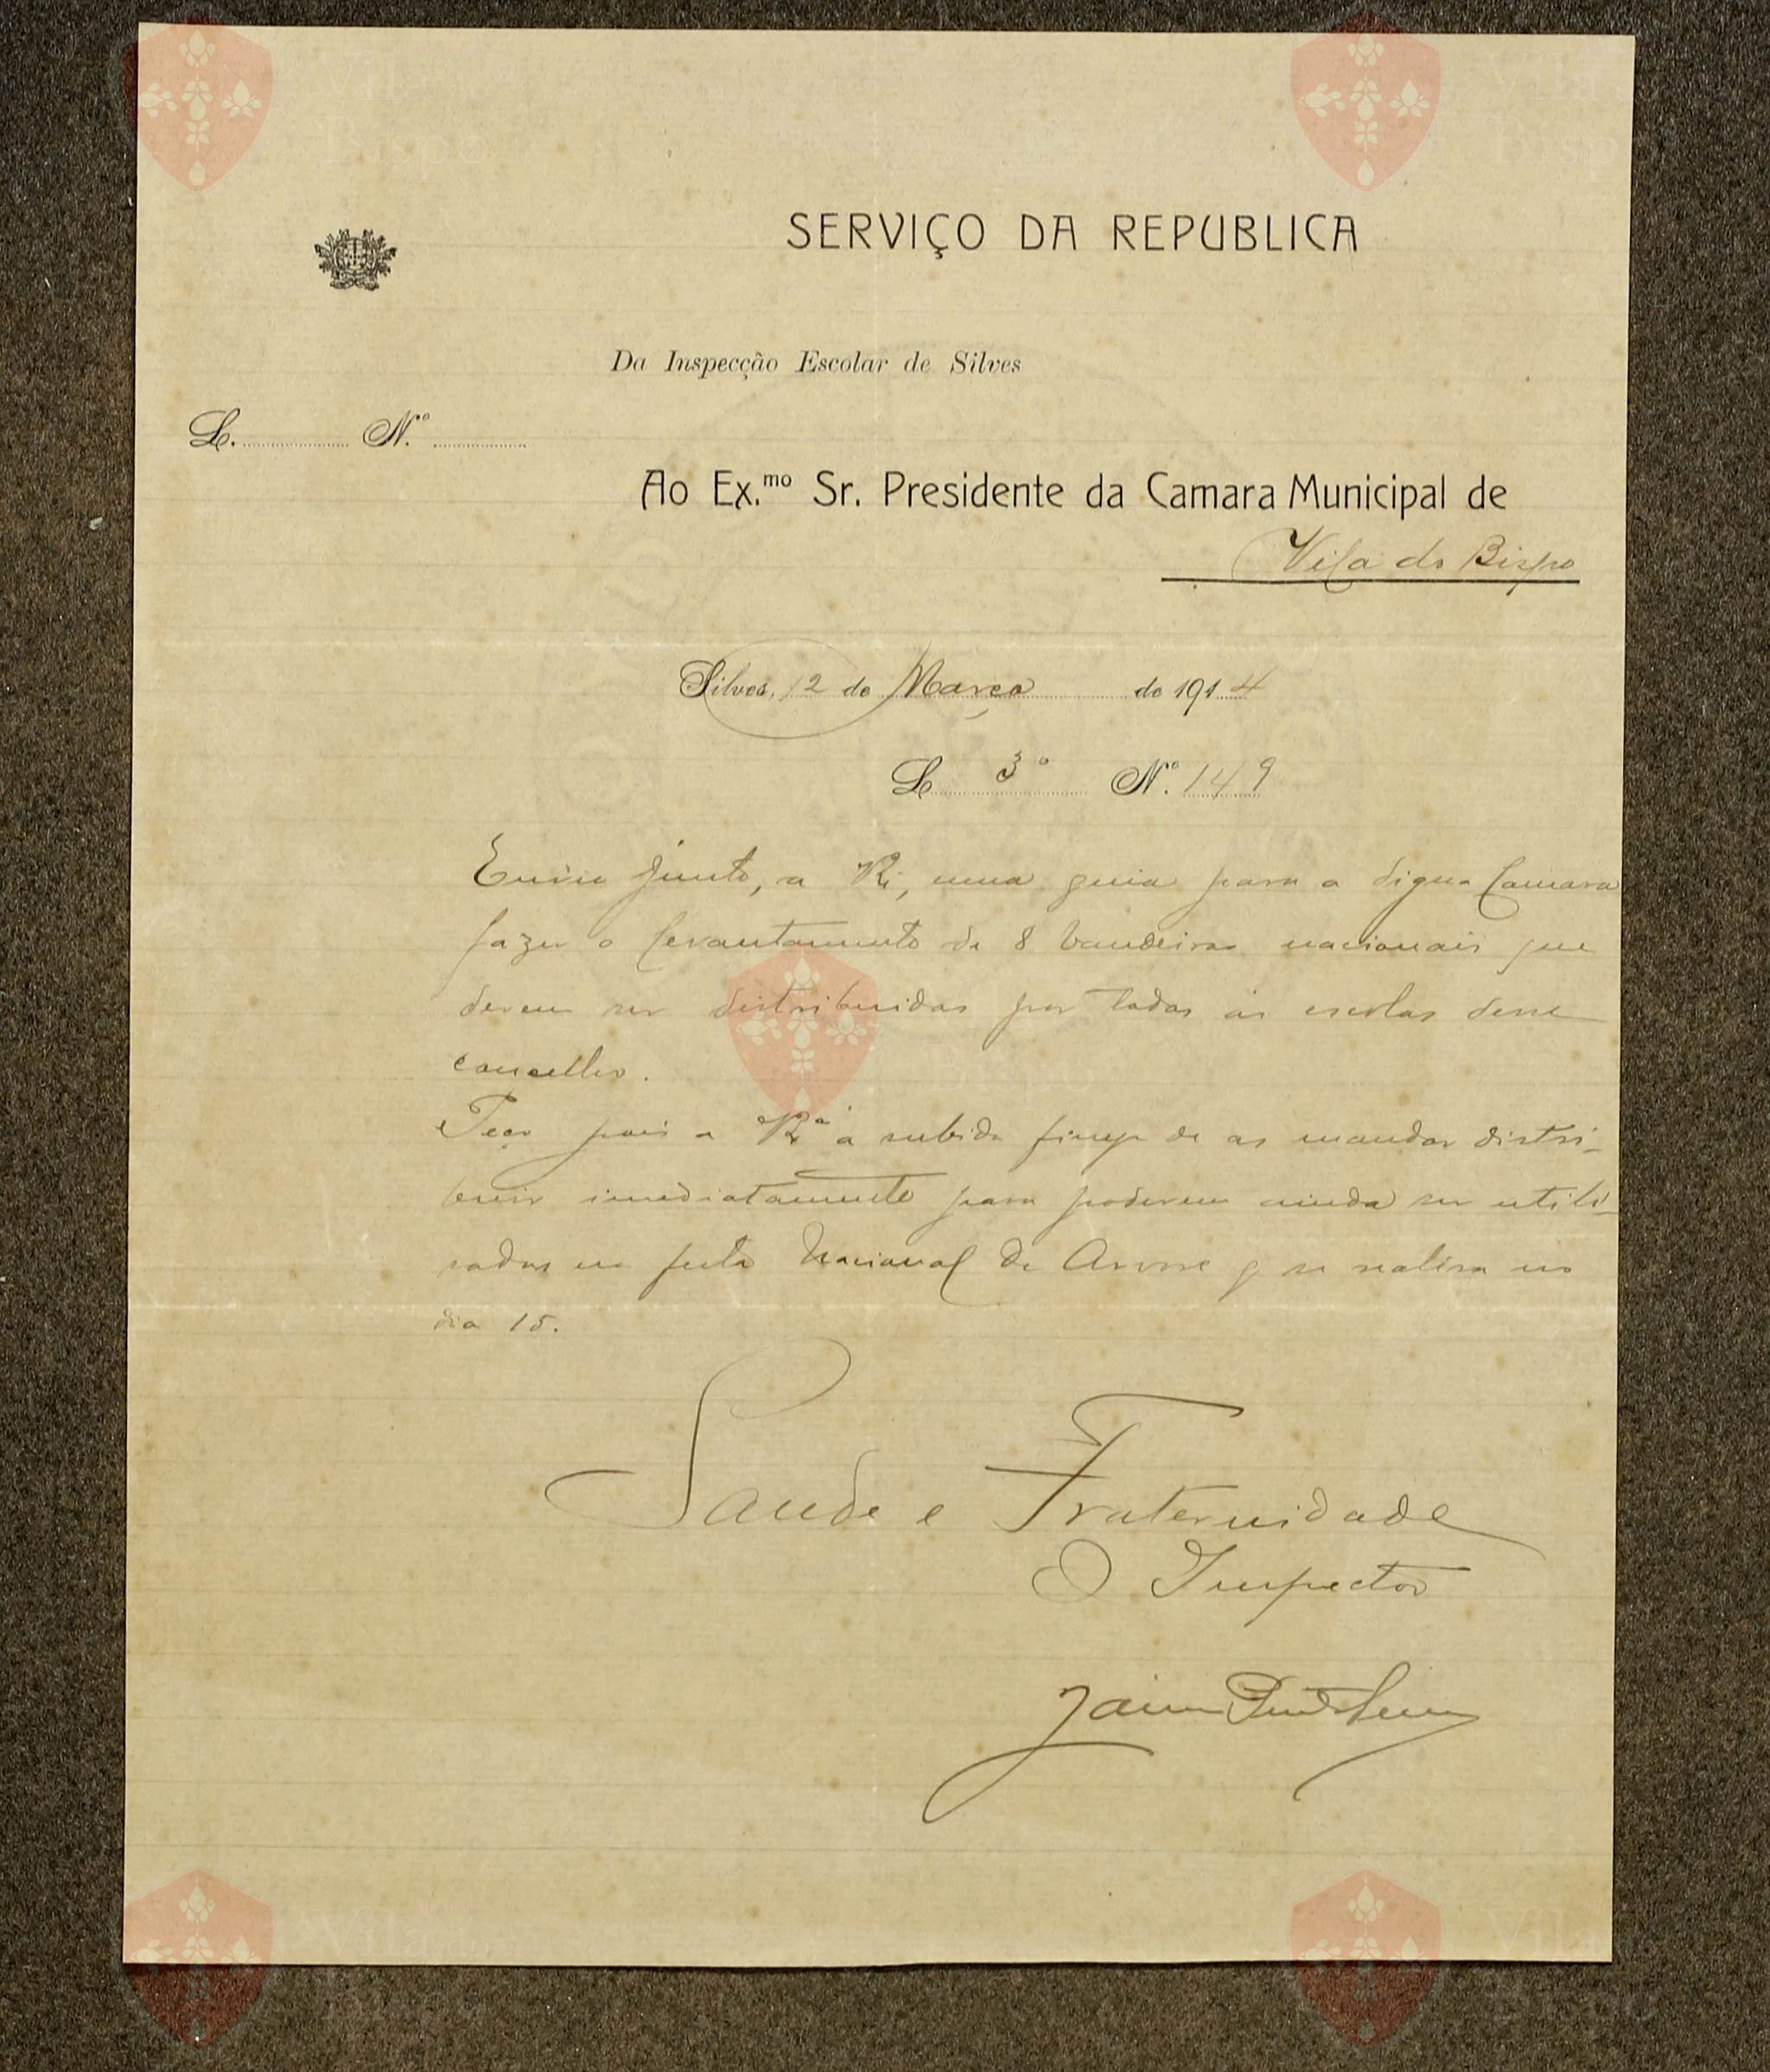 Vila do Bispo
Vila Bisp
SERVIÇO DA REPUBLICA
Da Inspecção Escolar de Silves
L. N.º
Ao Ex.mo Sr. Presidente da Camara Municipal de
Vila do Bispo
Silves, 12 de Março de 1914
L 3º Nº. 149
Envio junto, a V. Ex.ª, uma guia para a digna Camara
fazer o levantamento de 8 bandeiras nacionais que
devem ser distribuidas por todas as escolas desse
concelho.
Peço pois a V. Ex.ª a subida fineza de as mandar distri-
buir imediatamente para poderem ainda ser utili-
sadas na festa Nacional da Arvore q se realisa no
dia 15.
Saude e Fraternidade
O Inspector
Jaime
Vila
Vila